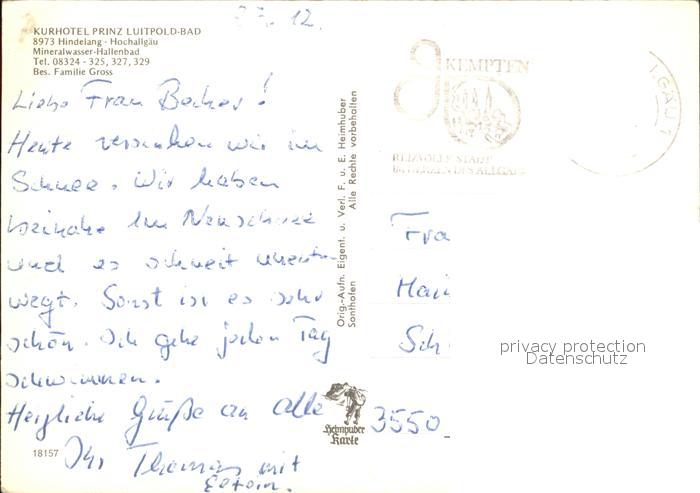 27.12.
KURHOTEL PRINZ LUITPOLD-BAD
8973 Hindelang - Hochallgäu
Mineralwasser-Hallenbad
Tel. 08324 - 325, 327, 329
Bes. Familie Gross
Liebe Frau Becker!
Heute versinken wir im
Schnee. Wir haben
beinahe 1m Neuschnee
und es schneit unent-
wegt. Sonst ist es sehr
schön. Ich gehe jeden Tag
schwimmen.
Herzliche Grüße an alle
Ihr Thomas mit
Eltern.
18157
Orig.-Aufn. Eigent. u. Verl. F. u. E. Heimhuber
Sonthofen Alle Rechte vorbehalten
Heimhuber
Karte
KEMPTEN
REIZVOLLE STADT
IM HERZEN DES ALLGÄU
LGÄU 1
Fra
Hai
Sch
3550
privacy protection
Datenschutz